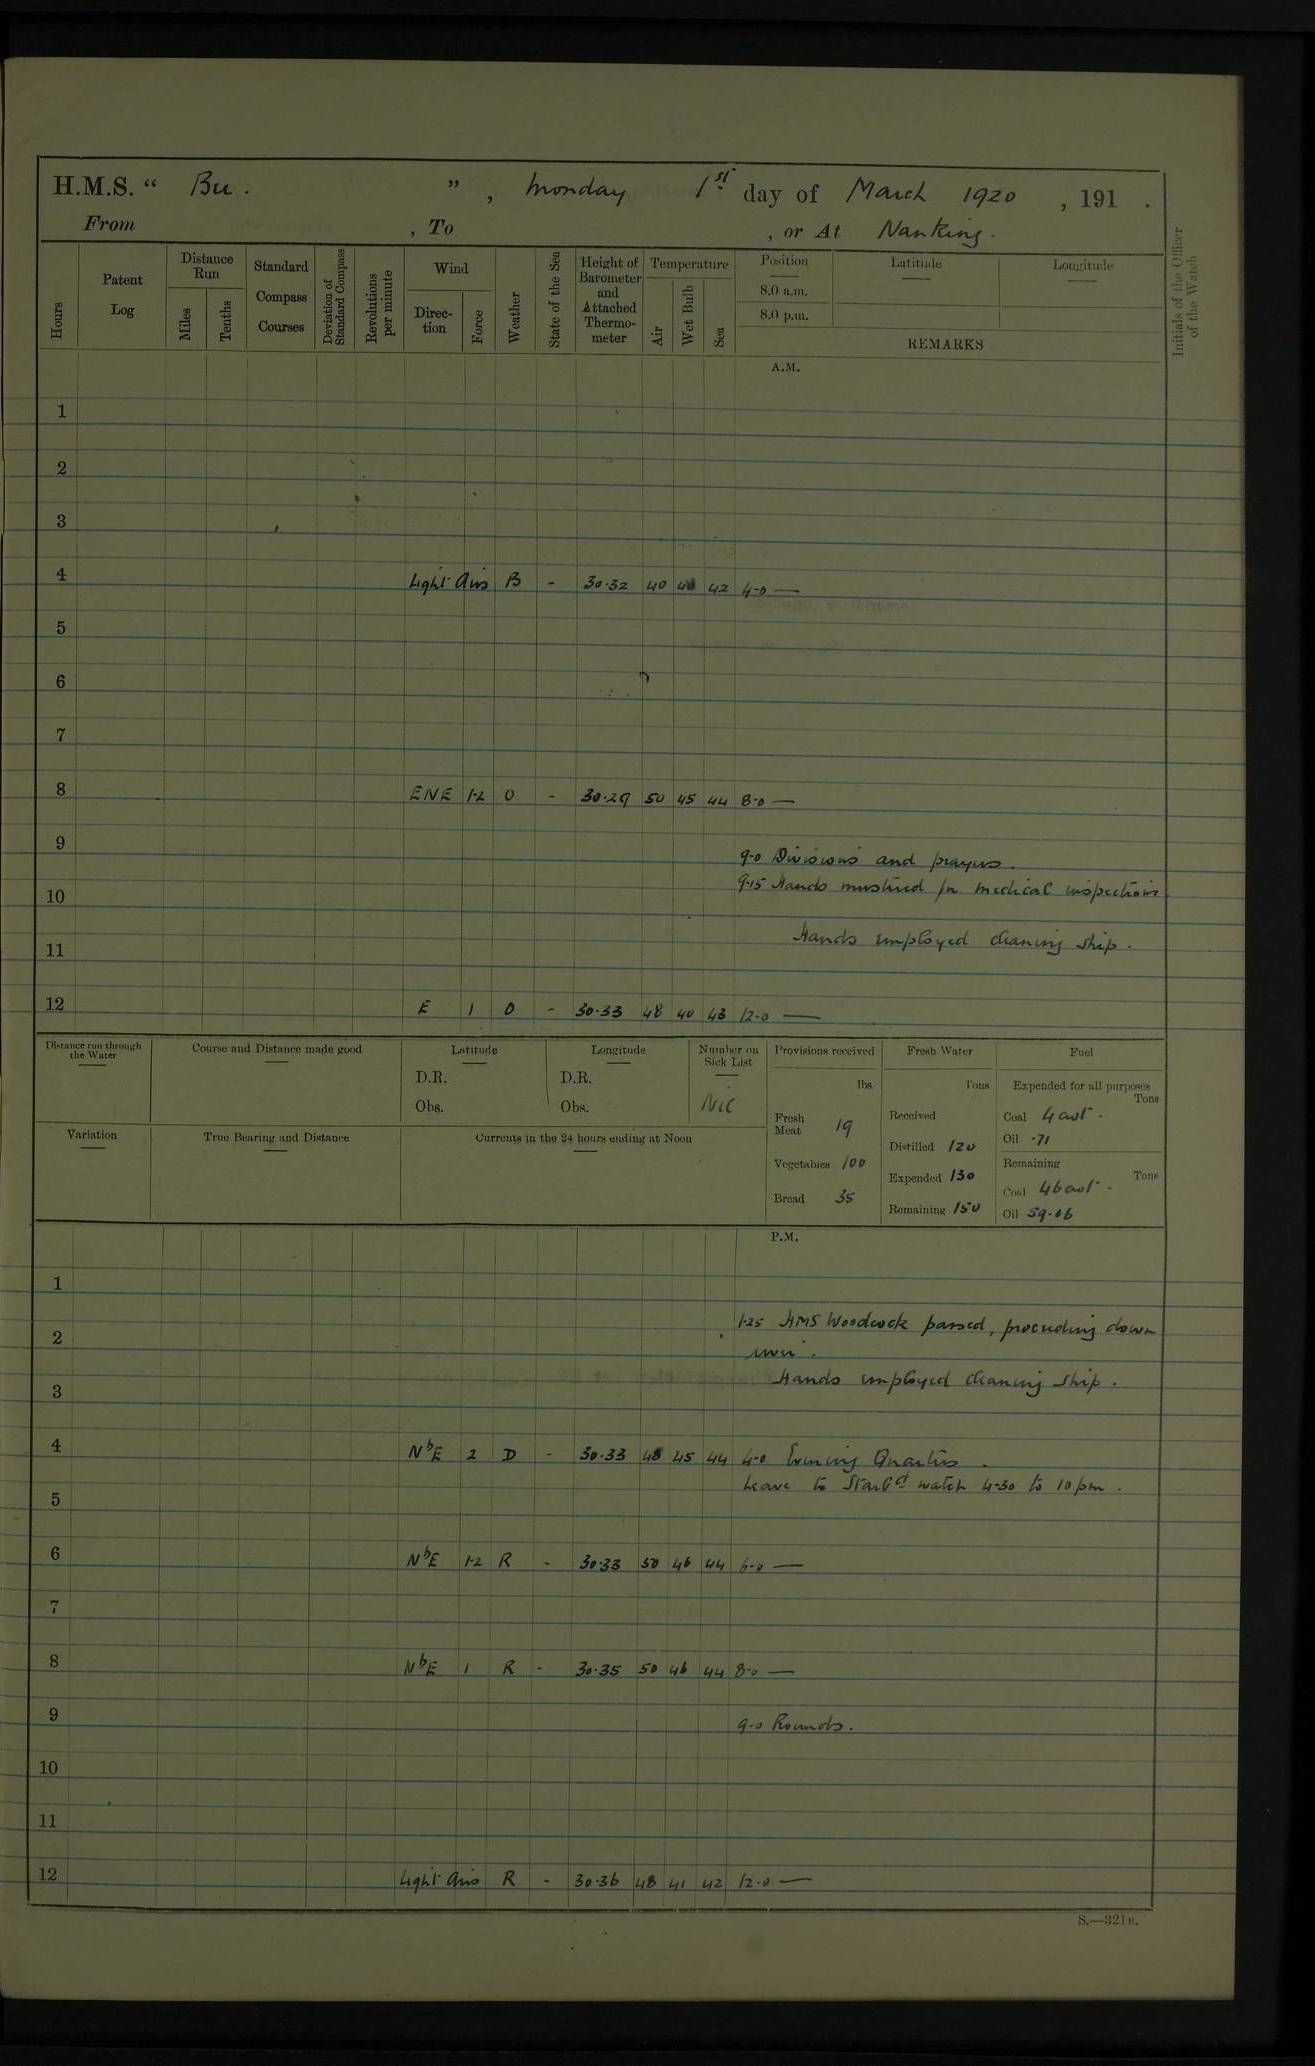 H.M.S. “ Bee. ” , Monday 1st day of March 1920 , 191 .
From , To , or At Nanking.
Hours
Patent Log
Distance Run
Miles
Tenths
Standard Compass Courses
Deviation of Standard Compass
Revolutions per minute
Wind
Direc-tion
Force
Weather
State of the Sea
Height of Barometer and Attached Thermo-meter
Temperature
Air
Wet Bulb
Sea
Position
8.0 a.m.
8.0 p.m.
Latitude
Longitude
REMARKS
Initials of the Officer of the Watch
A.M.
1
2
3
4 Light Airs B - 30.32 40 42 4-0 —
5
6
7
8 ENE 1-2 O - 30.29 50 45 44 8-0 —
9
9-0 Divisions and prayers.
9-15 Hands mustered for medical inspection.
10
Hands employed cleaning ship.
11
12 E 1 O - 30.33 48 40 43 12-0 —
Distance run through the Water
Course and Distance made good
Latitude
D.R.
Obs.
Longitude
D.R.
Obs.
Number on Sick List
Nil
Provisions received
lbs.
Fresh Meat 19
Vegetables 100
Bread 35
Fresh Water
Tons
Received
Distilled 120
Expended 130
Remaining 150
Fuel
Expended for all purposes
Tons
Coal 4 cwt.
Oil .71
Remaining
Tons
Coal 46 cwt.
Oil 59.06
Variation
True Bearing and Distance
Currents in the 24 hours ending at Noon
P.M.
1
1-25 HMS Woodcock passed, proceeding down
2
river.
Hands employed cleaning ship.
3
4 NbE 2 D - 30.33 45 44 4-0 Evening Quarters.
Leave to Starbd watch 4-30 to 10 pm.
5
6 NbE 1-2 R - 30.33 50 46 44 6-0 —
7
8 NbE 1 R - 30.35 50 46 44 8-0 —
9
9-0 Rounds.
10
11
12 Light Airs R - 30.36 48 41 42 12-0 —
S.—321B.